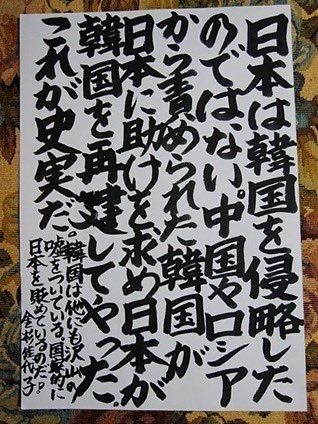 日本は韓国を侵略した
のではない。中国やロシア
から責められた韓国が
日本に助けを求め日本が
韓国を再建してやった。
これが史実だ。
韓国は他にも沢山の
嘘をついている。国際的に
日本を貶めているのだ。